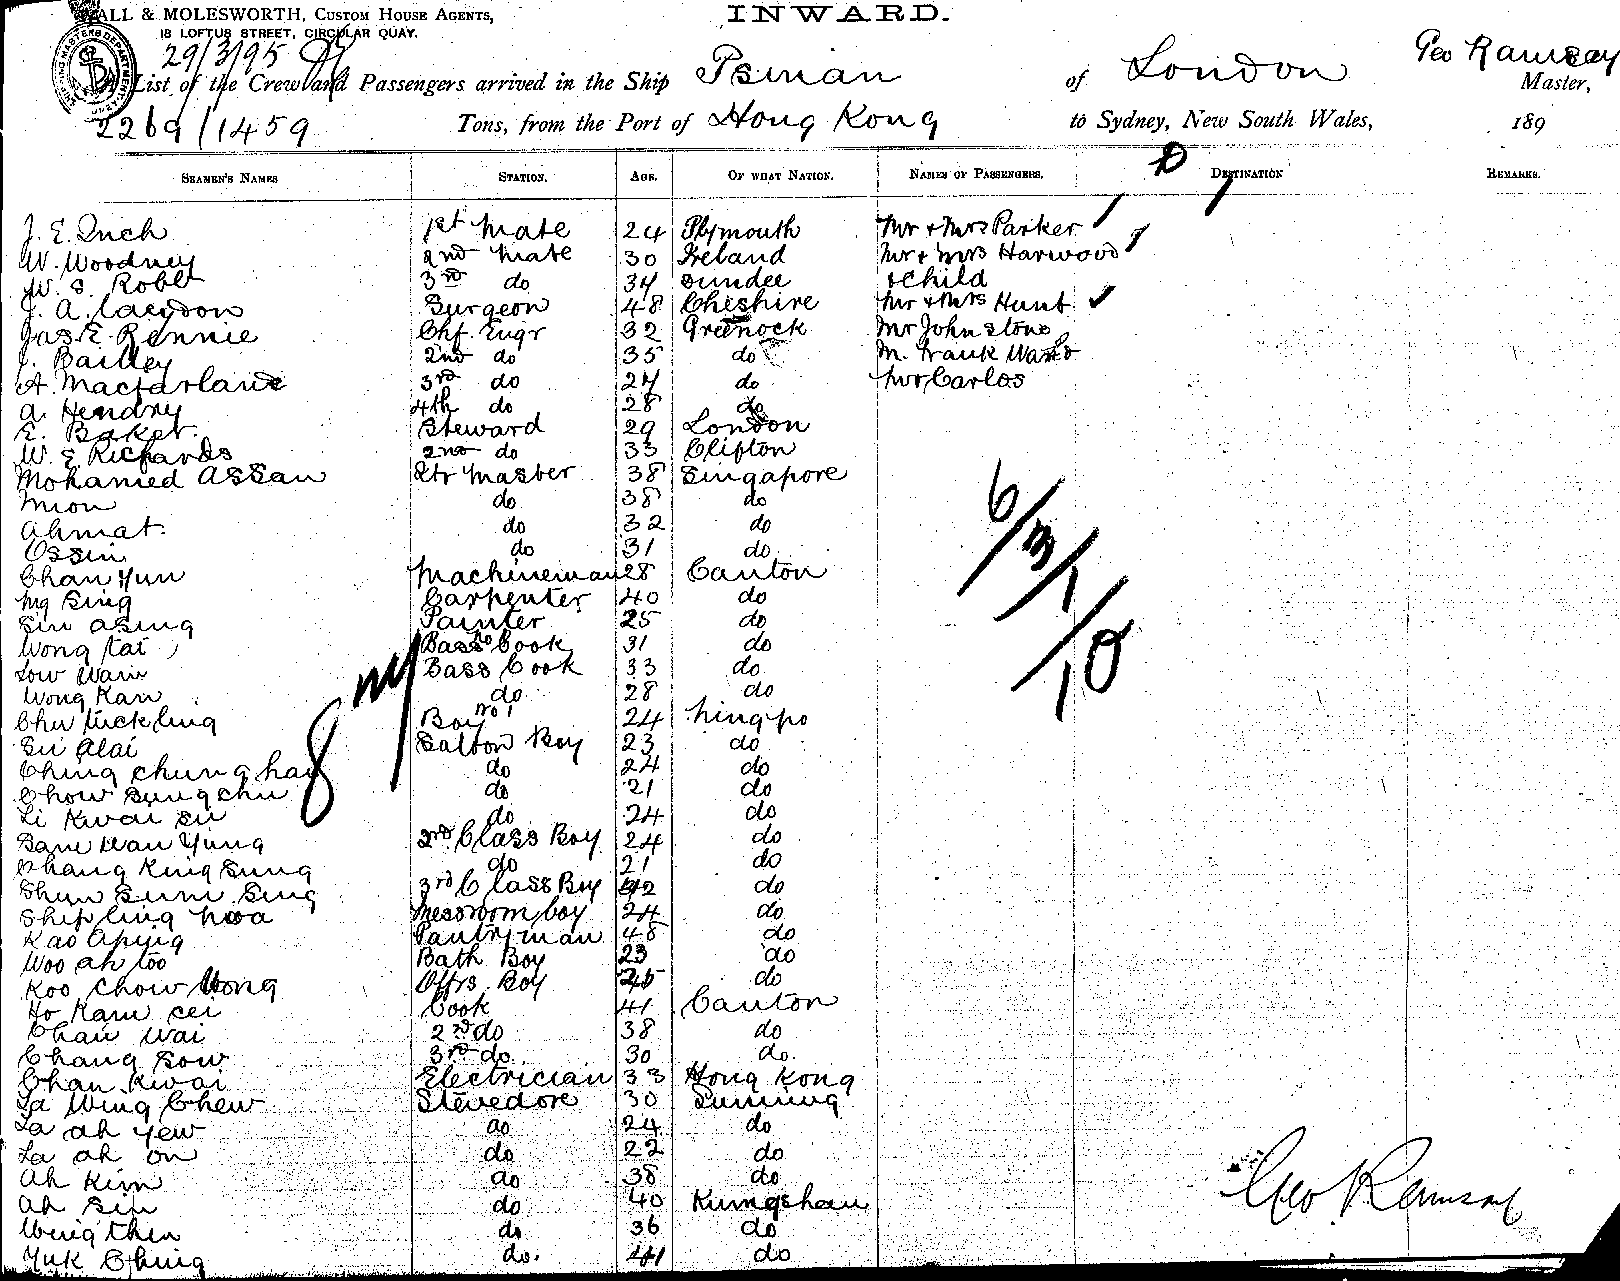 ALL & MOLESWORTH, CUSTOM HOUSE AGENTS,
18 LOFTUS STREET, CIRCULAR QUAY.
INWARD.
29/3/95
List of the Crew and Passengers arrived in the Ship Tsinan of London Geo Ramsay Master,
2269/1459 Tons, from the Port of Hong Kong to Sydney, New South Wales, 189
SEAMEN'S NAMES STATION. AGE. OF WHAT NATION. NAMES OF PASSENGERS. DESTINATION REMARKS.
J. E. Inch 1st Mate 24 Plymouth Mr & Mrs Parker
W. Woodney 2nd Mate 30 Ireland Mr & Mrs Harwood
W. S. Robb 3rd do 34 Dundee & Child
J. A. Surgeon 48 Cheshire Mr & Mrs Hunt
Jas E. Rennie Chf. Engr 32 Greenock Mr Johnstone
J. Bailey 2nd do 35 do M. Frank Ward
A. Macfarlane 3rd do 27 do Mr Carlos
A. Hendry 4th do 28 do
E. Baker Steward 29 London
W. E Richards 2nd do 33 Clifton
Mohamed Assan Qtr Master 38 Singapore
Mion do 38 do
Ahmat. do 32 do
Ossin do 31 do
Chan Yun Machineman 28 Canton
Ng Sing Carpenter 40 do
Sin Asing Painter 25 do
Wong Tai Bass Cook 31 do
Low Wain Bass Cook 33 do
Wong Kan do 28 do
Chu Uck ling Boy no 1 24 Ningpo
Su Alai Saloon Boy 23 do
Ching Chung hay do 24 do
Chow Sung Chu do 21 do
Li Kwai Su do 24 do
Sam Wan Yung 2nd Class Boy 24 do
Chang King Sung do 21 do
Shun Sum Sing 3rd Class Boy do
Ship ling Noa Messroom boy 24 do
Kao Aping Pantryman 48 do
Woo ah too Bath Boy 23 do
Koo Chow Wong Offrs. Boy 25 do
Ho Kam Cook 41 Canton
Chan Wai 2nd do 38 do
Chang Sow 3rd do. 30 do.
Chan Kwai Electrician 33 Hong Kong
La Wing Chew Stevedore 30 Sunning
La ah Yew do 24 do
La ah on do 22 do
Ah Kim do 38 do
Ah Sin do 40 Kungshan
Wing then do 36 do
Yuk Ching do. 41 do
6/3/1
/10
8
Geo Ramsay